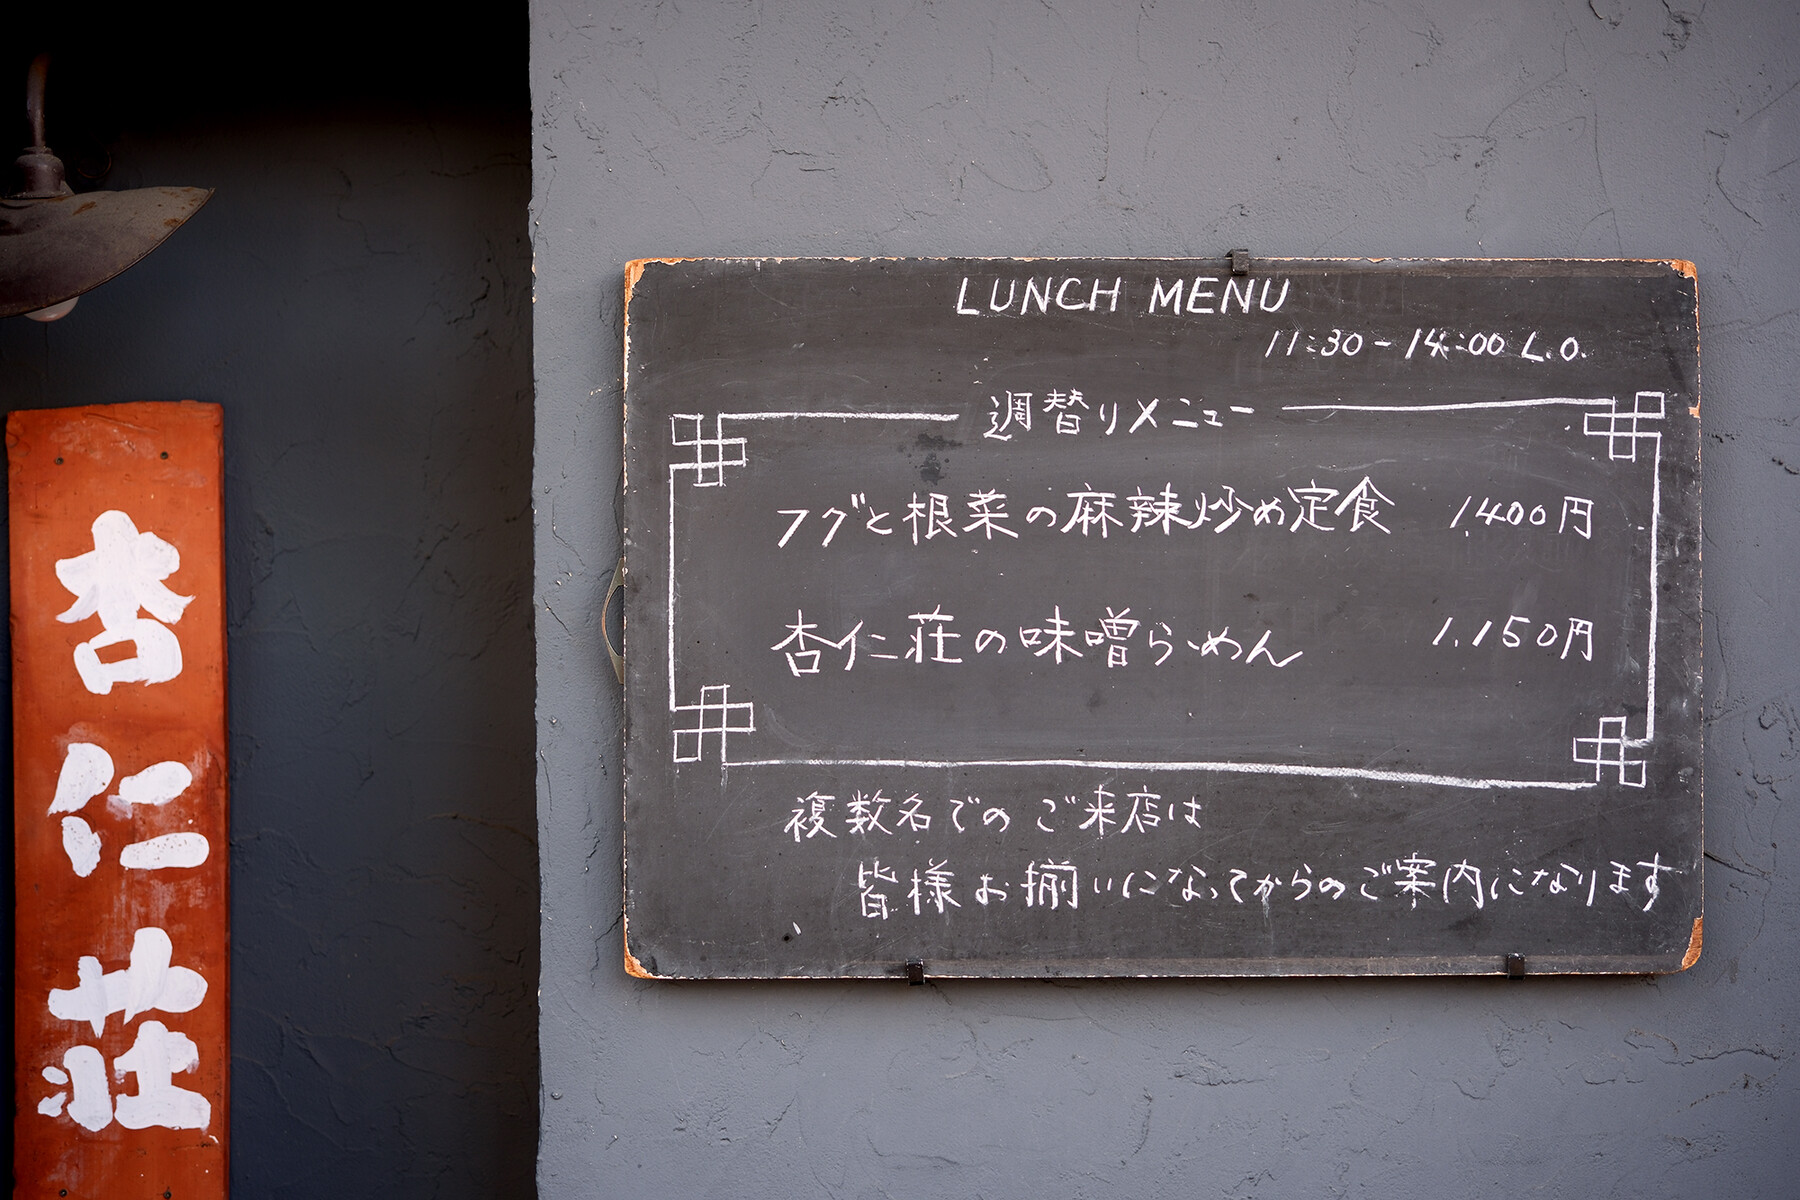 杏仁荘
LUNCH MENU
11:30-14:00 L.O.
週替りメニュー
フグと根菜の麻辣炒め定食 1,400円
杏仁荘の味噌らーめん 1,150円
複数名でのご来店は
皆様お揃いになってからのご案内になります